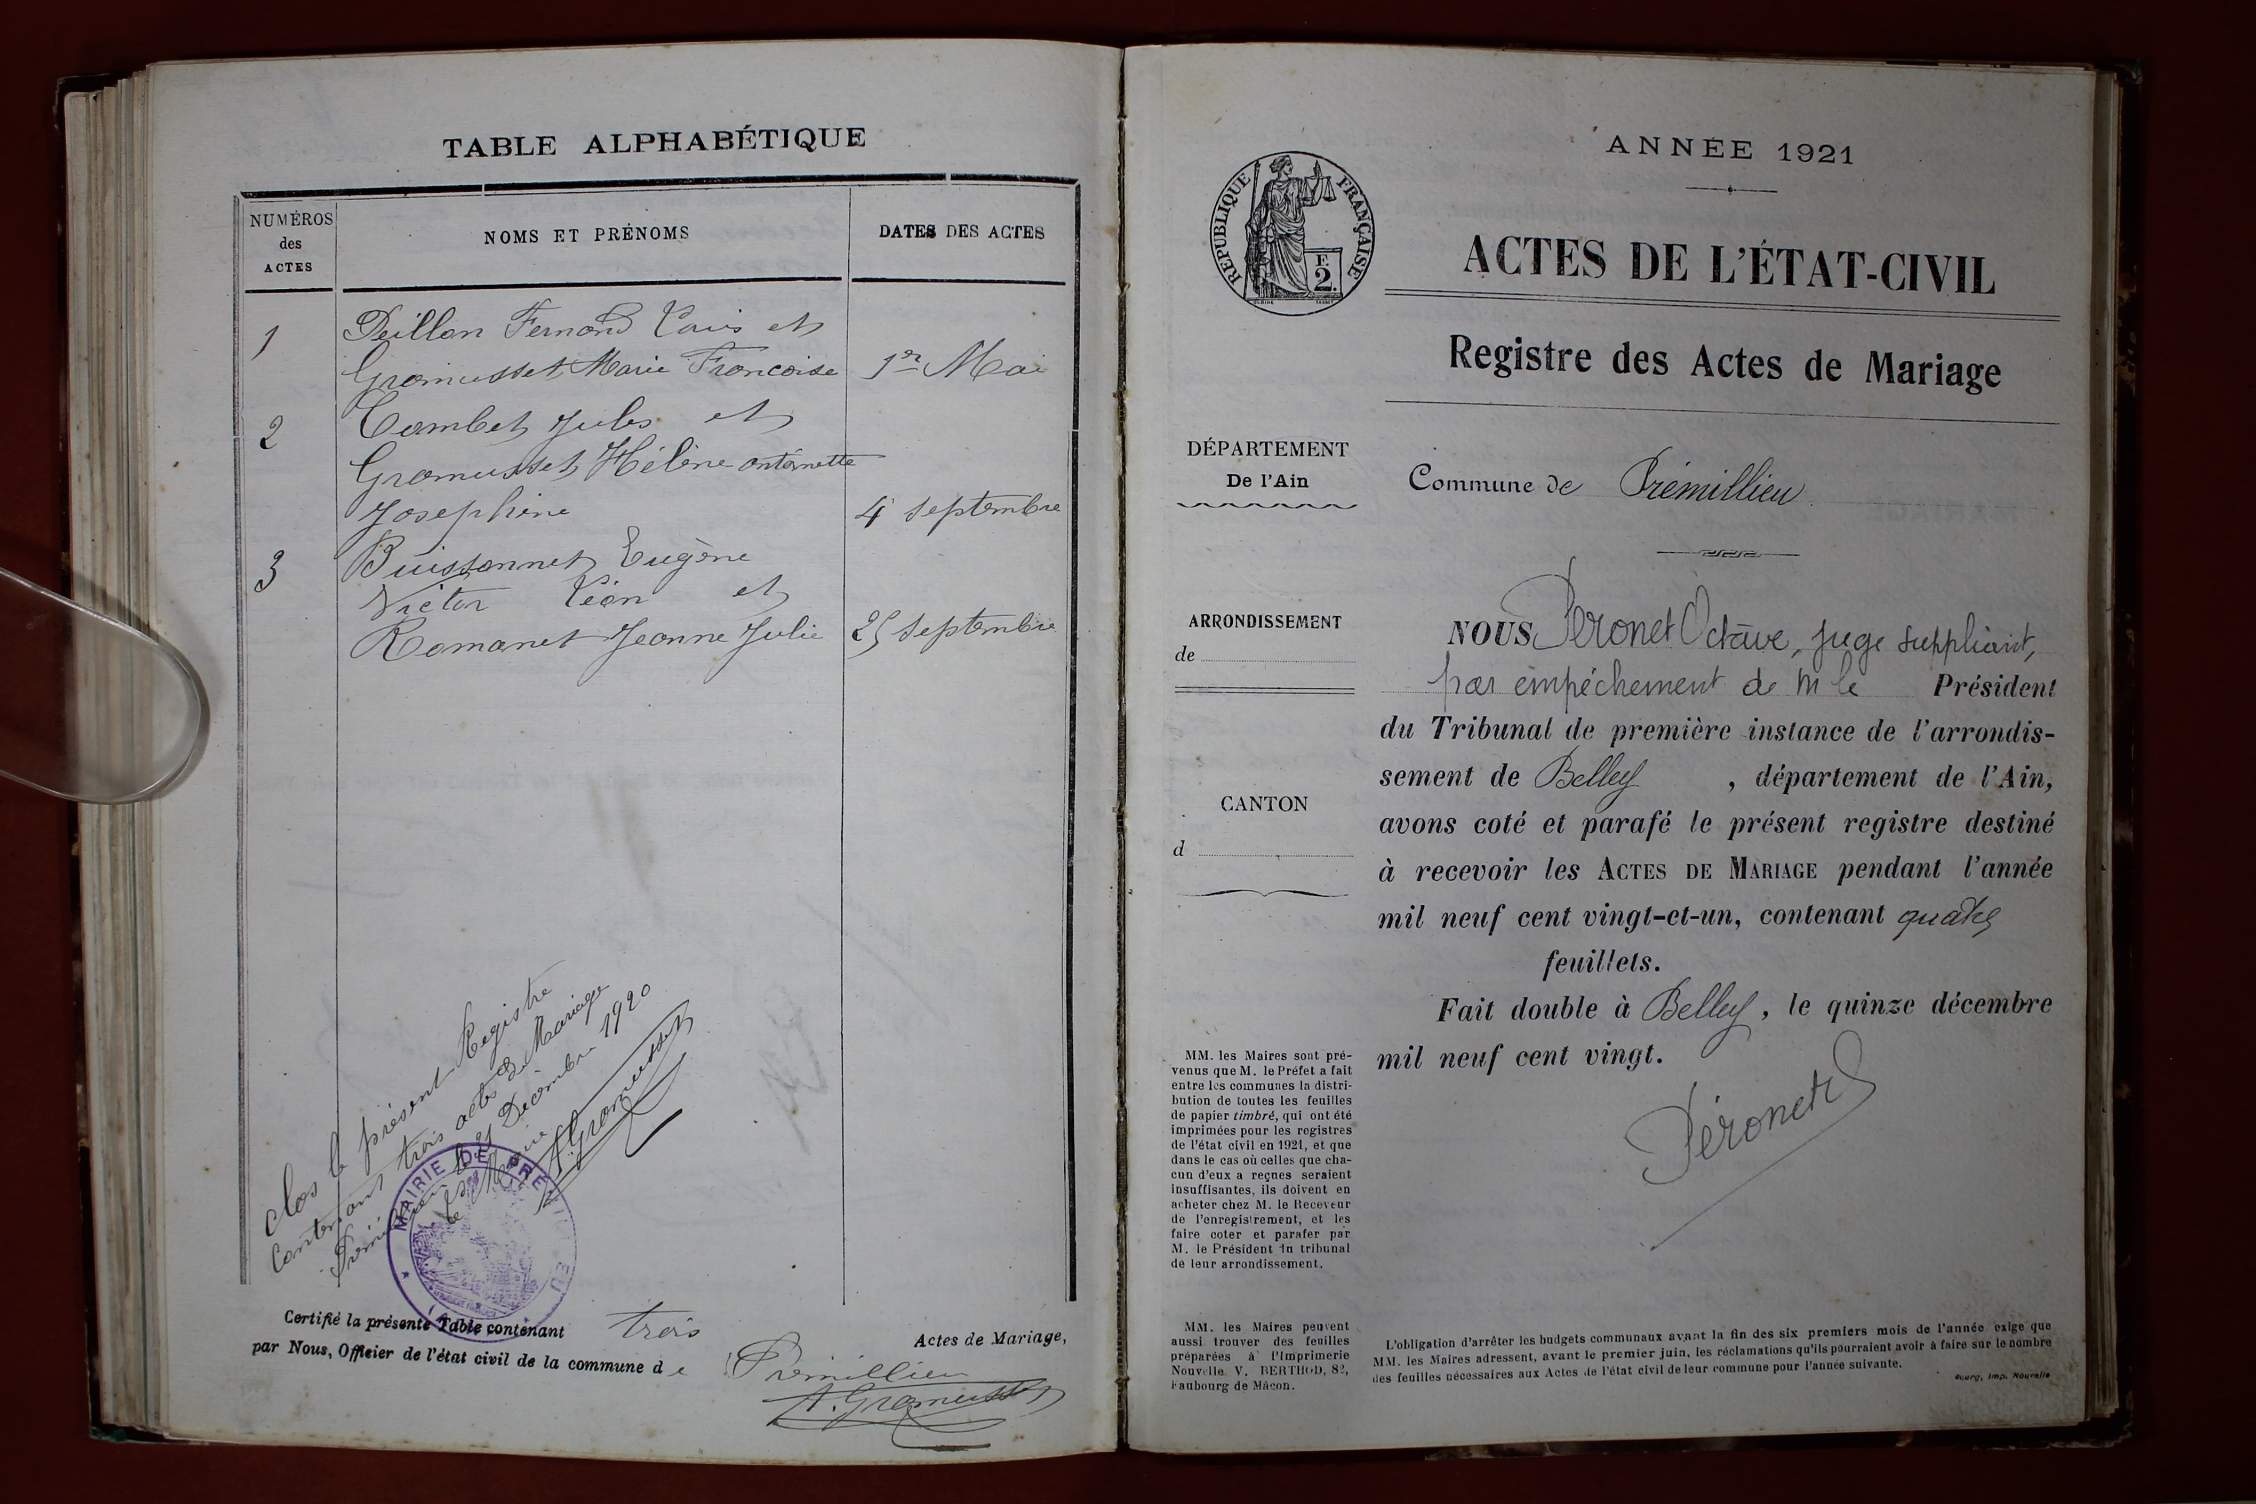 TABLE ALPHABÉTIQUE
NUMÉROS
des
ACTES
NOMS ET PRÉNOMS
DATES DES ACTES
1
Peillon Fernand Louis et
Gromusset Marie Francoise 1er Mai
2
Combet Jules et
Gromusset Hélène antoinette
Josephine 4 septembre
3
Buissonnet Eugène
Victor Léon et
Romanet Jeanne Julie 25 septembre
Clos le présent Registre
Contenant trois actes de Mariage
Prémillieu le 31 Décembre 1920
Le Maire
A. Gromusset
MAIRIE DE PRÉMILLIEU
(AIN)
Certifié la présente Table contenant trois Actes de Mariage,
par Nous, Officier de l'état civil de la commune de Prémillieu
A. Gromusset
ANNÉE 1921
RÉPUBLIQUE FRANÇAISE
F.
2.
ACTES DE L'ÉTAT-CIVIL
Registre des Actes de Mariage
DÉPARTEMENT
De l'Ain
Commune de Prémillieu
ARRONDISSEMENT
de
CANTON
d
NOUS Péronet Octave, juge suppléant,
par empêchement de M le Président
du Tribunal de première instance de l'arrondis-
sement de Belley , département de l'Ain,
avons coté et parafé le présent registre destiné
à recevoir les ACTES DE MARIAGE pendant l'année
mil neuf cent vingt-et-un, contenant quatre
feuillets.
Fait double à Belley, le quinze décembre
mil neuf cent vingt.
Péronet
MM. les Maires sont pré-
venus que M. le Préfet a fait
entre les communes la distri-
bution de toutes les feuilles
de papier timbré, qui ont été
imprimées pour les registres
de l'état civil en 1921, et que
dans le cas où celles que cha-
cun d'eux a reçues seraient
insuffisantes, ils doivent en
acheter chez M. le Receveur
de l'enregistrement, et les
faire coter et parafer par
M. le Président du tribunal
de leur arrondissement.
MM. les Maires peuvent
aussi trouver des feuilles
préparées à l'Imprimerie
Nouvelle V. BERTHOD, 82,
Faubourg de Mâcon.
L'obligation d'arrêter les budgets communaux avant la fin des six premiers mois de l'année exige que
MM. les Maires adressent, avant le premier juin, les réclamations qu'ils pourraient avoir à faire sur le nombre
des feuilles nécessaires aux Actes de l'état civil de leur commune pour l'année suivante.
Bourg, Imp. Nouvelle